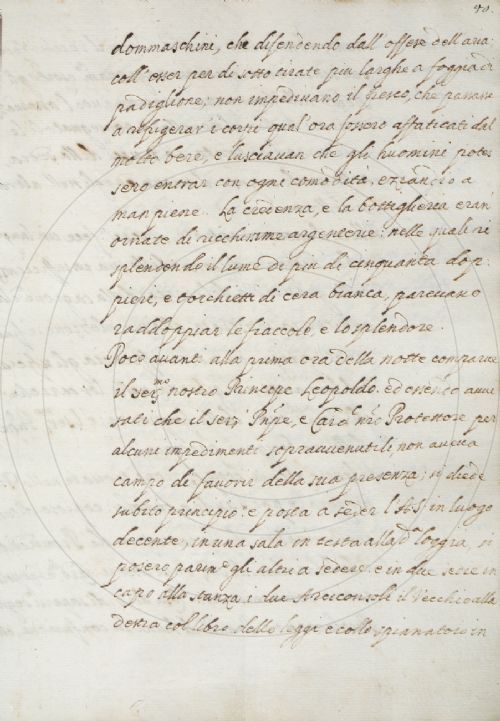 40.
dommaschini, che difendendo dall' offese dell'aria
coll' esser per di sotto tirate piu larghe a foggia di
padiglione; non impedivano il fresco, che passasse
a refrigerar i corpi qual ora fossero affaticati dal
molto bere, e lasciavan che gli huomini potes
sero entrar con ogni comodità, eziandio a
man piene. La credenza, e la bottiglieria eran
ornate di ricchissime argenterie: nelle quali ri
splendendo il lume de piu di cinquanta dop-
pieri, e torchietti di cera bianca, parevano
raddoppiar le fiaccole, e lo splendore.
Poco avanti alla prima ora della notte comparve
il Ser.mo nostro Principe Leopoldo. ed essendo avvi
sati che il Ser. Pnpe, e Card. nro Protettore per
alcuni impedimenti sopravvenutili non aveva
campo di favorir della sua presenza; si diede
subito principio: e posta a seder l' in luogo
decente, in una sala in testa alla loggia, si
posero gli altri a sedere e in due sedie in
capo alla stanza i due Arciconsoli il Vecchio alla
destra col libro delle leggi e collo spianatoio in